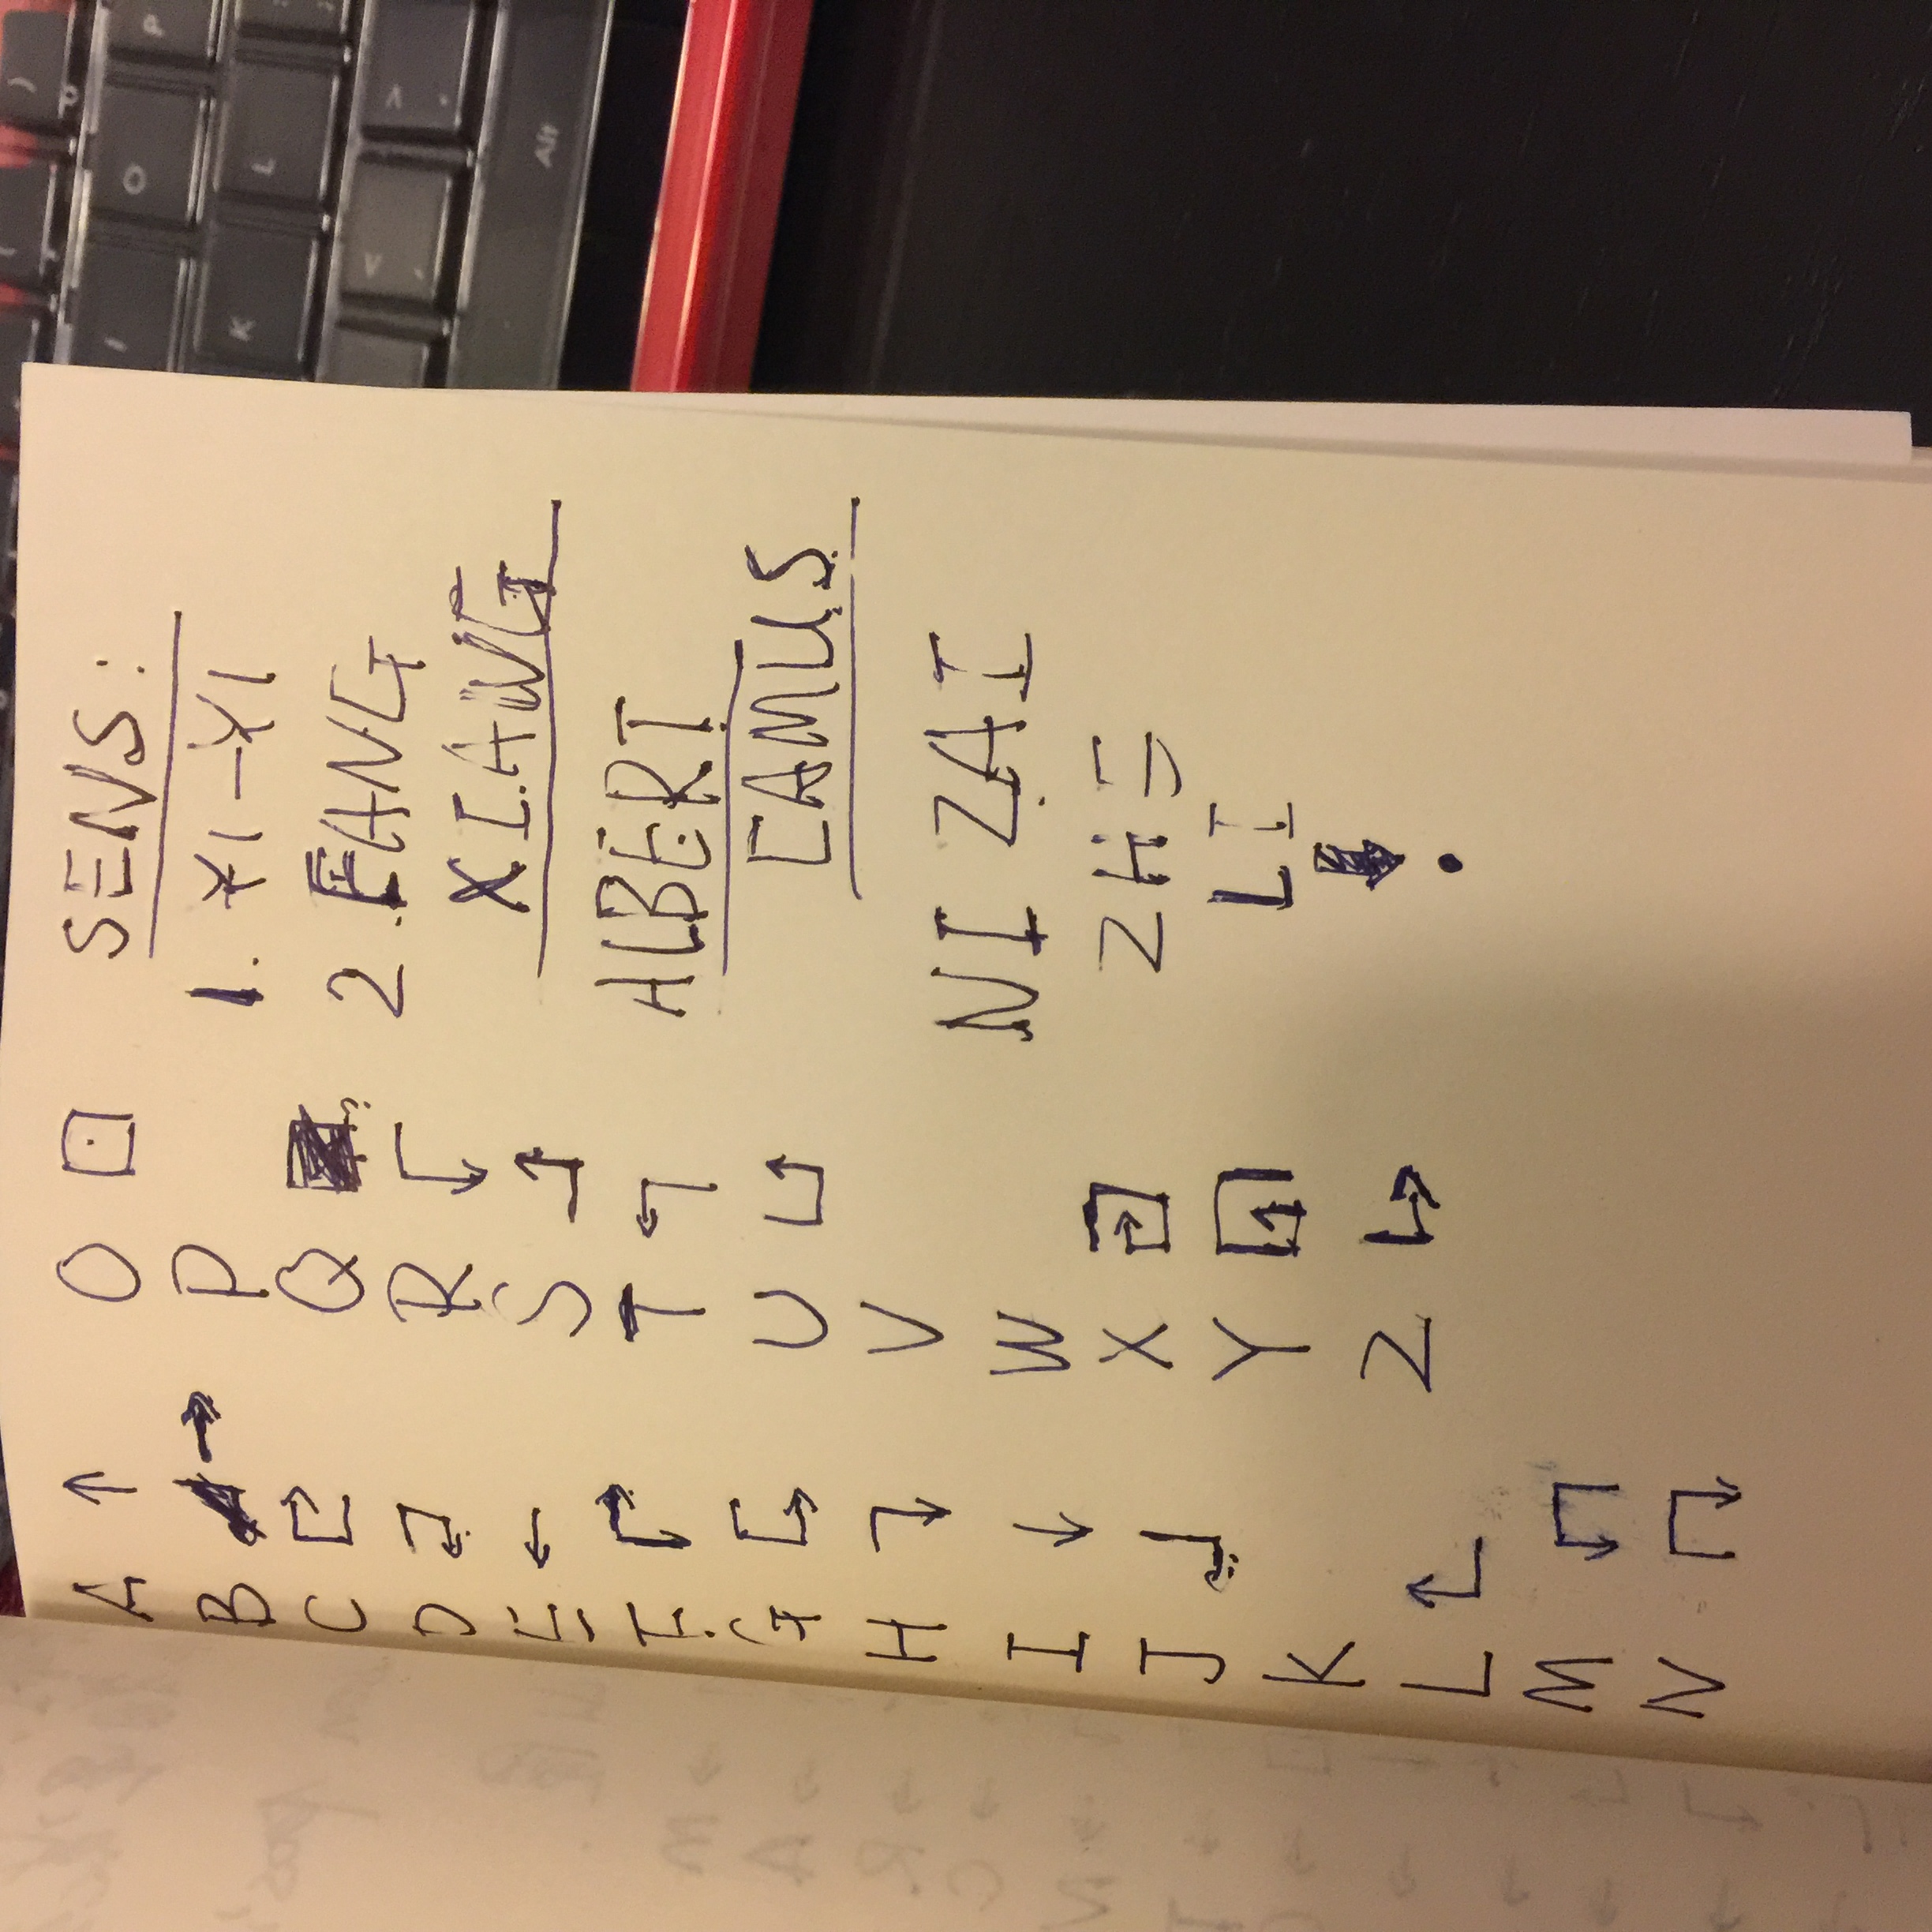 A ↑
B →
C
D
E ←
F
G
H
I ↓
J
K
L
M
N
O
P
Q
R
S
T
U
V
W
X
Y
Z
SENS:
1. YI-YI
2. FANG
XIANG
ALBERT
CAMUS
NI ZAI
ZH
LI
P
O
L
I
K
Alt